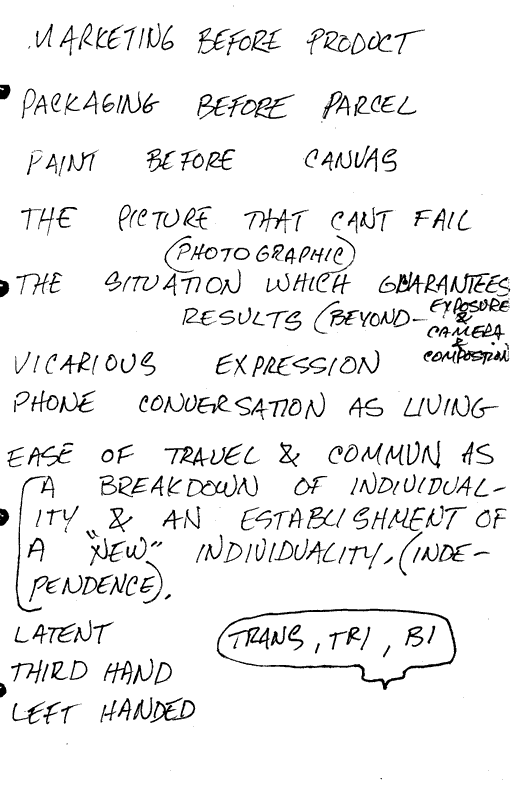 MARKETING BEFORE PRODUCT
PACKAGING BEFORE PARCEL
PAINT BEFORE CANVAS
THE PICTURE THAT CANT FAIL
(PHOTOGRAPHIC)
THE SITUATION WHICH GUARANTEES
RESULTS (BEYOND- EXPOSURE
&
CAMERA
&
COMPOSTION
VICARIOUS EXPRESSION
PHONE CONVERSATION AS LIVING
EASE OF TRAVEL & COMMUN, AS
A BREAKDOWN OF INDIVIDUAL-
ITY & AN ESTABLISHMENT OF
A "NEW" INDIVIDUALITY, (INDE-
PENDENCE).
LATENT
TRANS, TRI, BI
THIRD HAND
LEFT HANDED